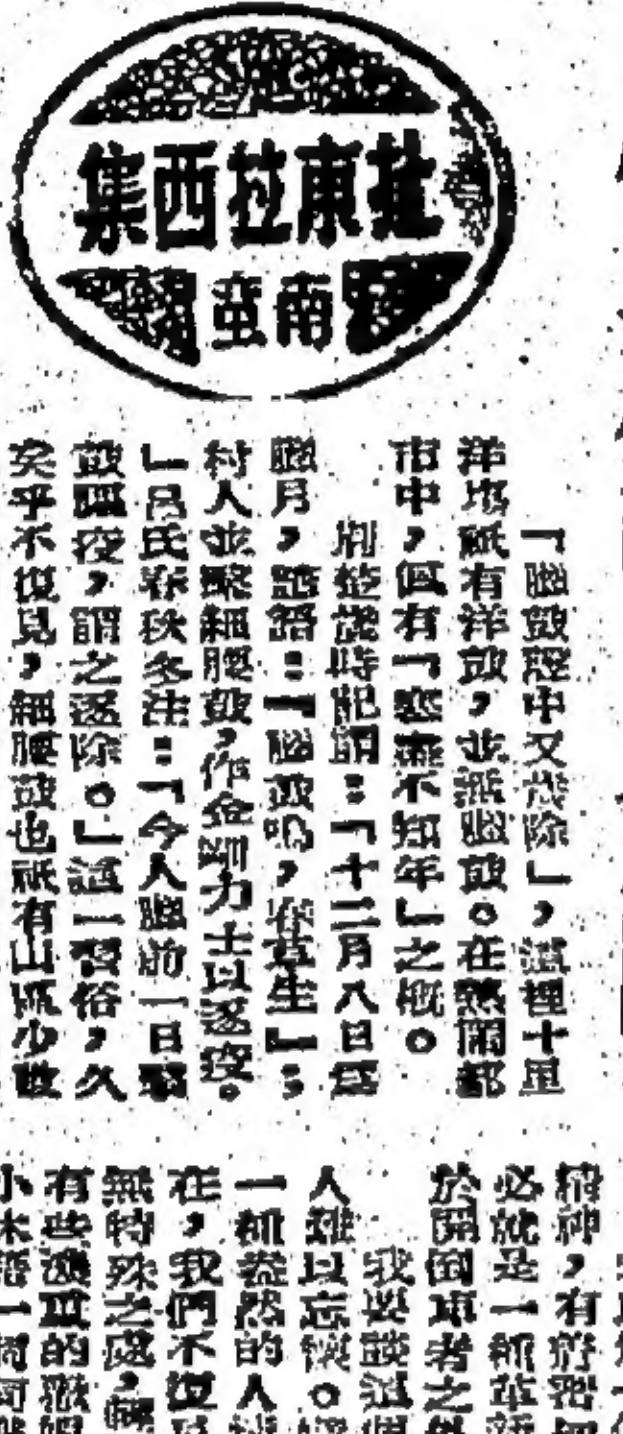 扯東拉西集
南蛮
「臘鼓聲中又歲除」,這裡十里
洋塲祇有洋鼓,並無臘鼓。在熱鬧都
市中,但有「寒盡不知年」之概。
荆楚歲時記謂:「十二月八日爲
臘月,諺語:「臘鼓鳴,春草生」;
村人並擊細腰鼓,作金剛力士以逐疫。
」呂氏春秋冬注:「今人臘前一日擊
鼓驅疫,謂之逐除。」這一習俗,久
矣乎不復見,細腰鼓也祇有山區少數
精神,有所
必就是一種革新
於開倒車者之
我要談這個
人難以忘懷。
一種盎然的人
在,我們不復
無特殊之處,
有些濃重的
小